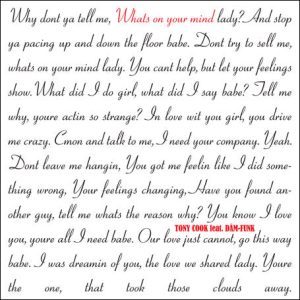 Why dont ya tell me, Whats on your mind lady?And stop
ya pacing up and down the floor babe. Dont try to sell me,
whats on your mind lady. You cant help, but let your feelings
show. What did I do girl, what did I say babe? Tell me
why, youre actin so strange? In love wit you girl, you drive
me crazy. Cmon and talk to me, I need your company. Yeah.
Dont leave me hangin, You got me feelin like I did some-
thing wrong, Your feelings changing, Have you found an-
other guy, tell me whats the reason why? You know I love
TONY COOK feat. DÂM-FUNK
you, youre all I need babe. Our love just cannot, go this way
babe. I was dreamin of you, the love we shared lady. Youre
the one, that took those clouds away.